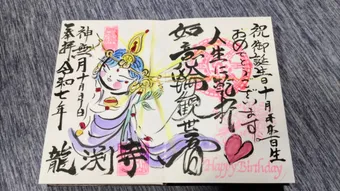 祝御誕生日十月
生
おめでとうございます。
人生に乾杯
如意輪観世音
神無月十月
奉拝 令和七年
龍渕寺
Happy Birthday